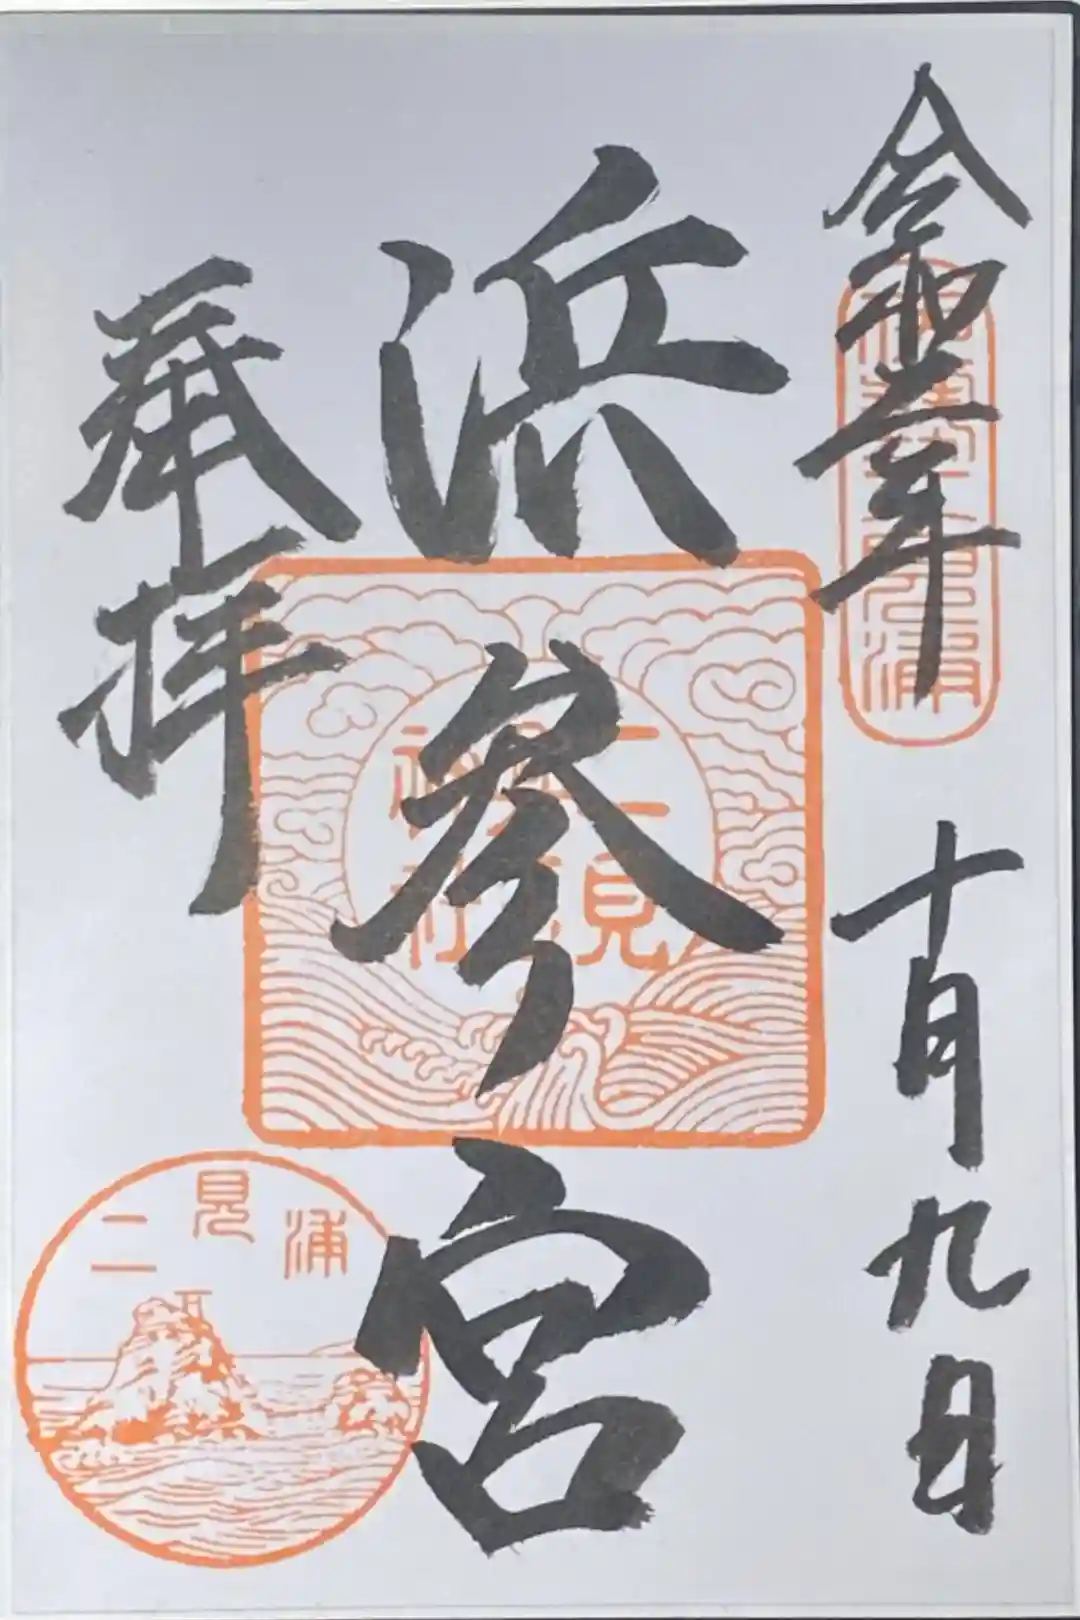 令和五年 十月九日
二見浦
浜参宮
二見
興玉
神社
奉拝
二見浦